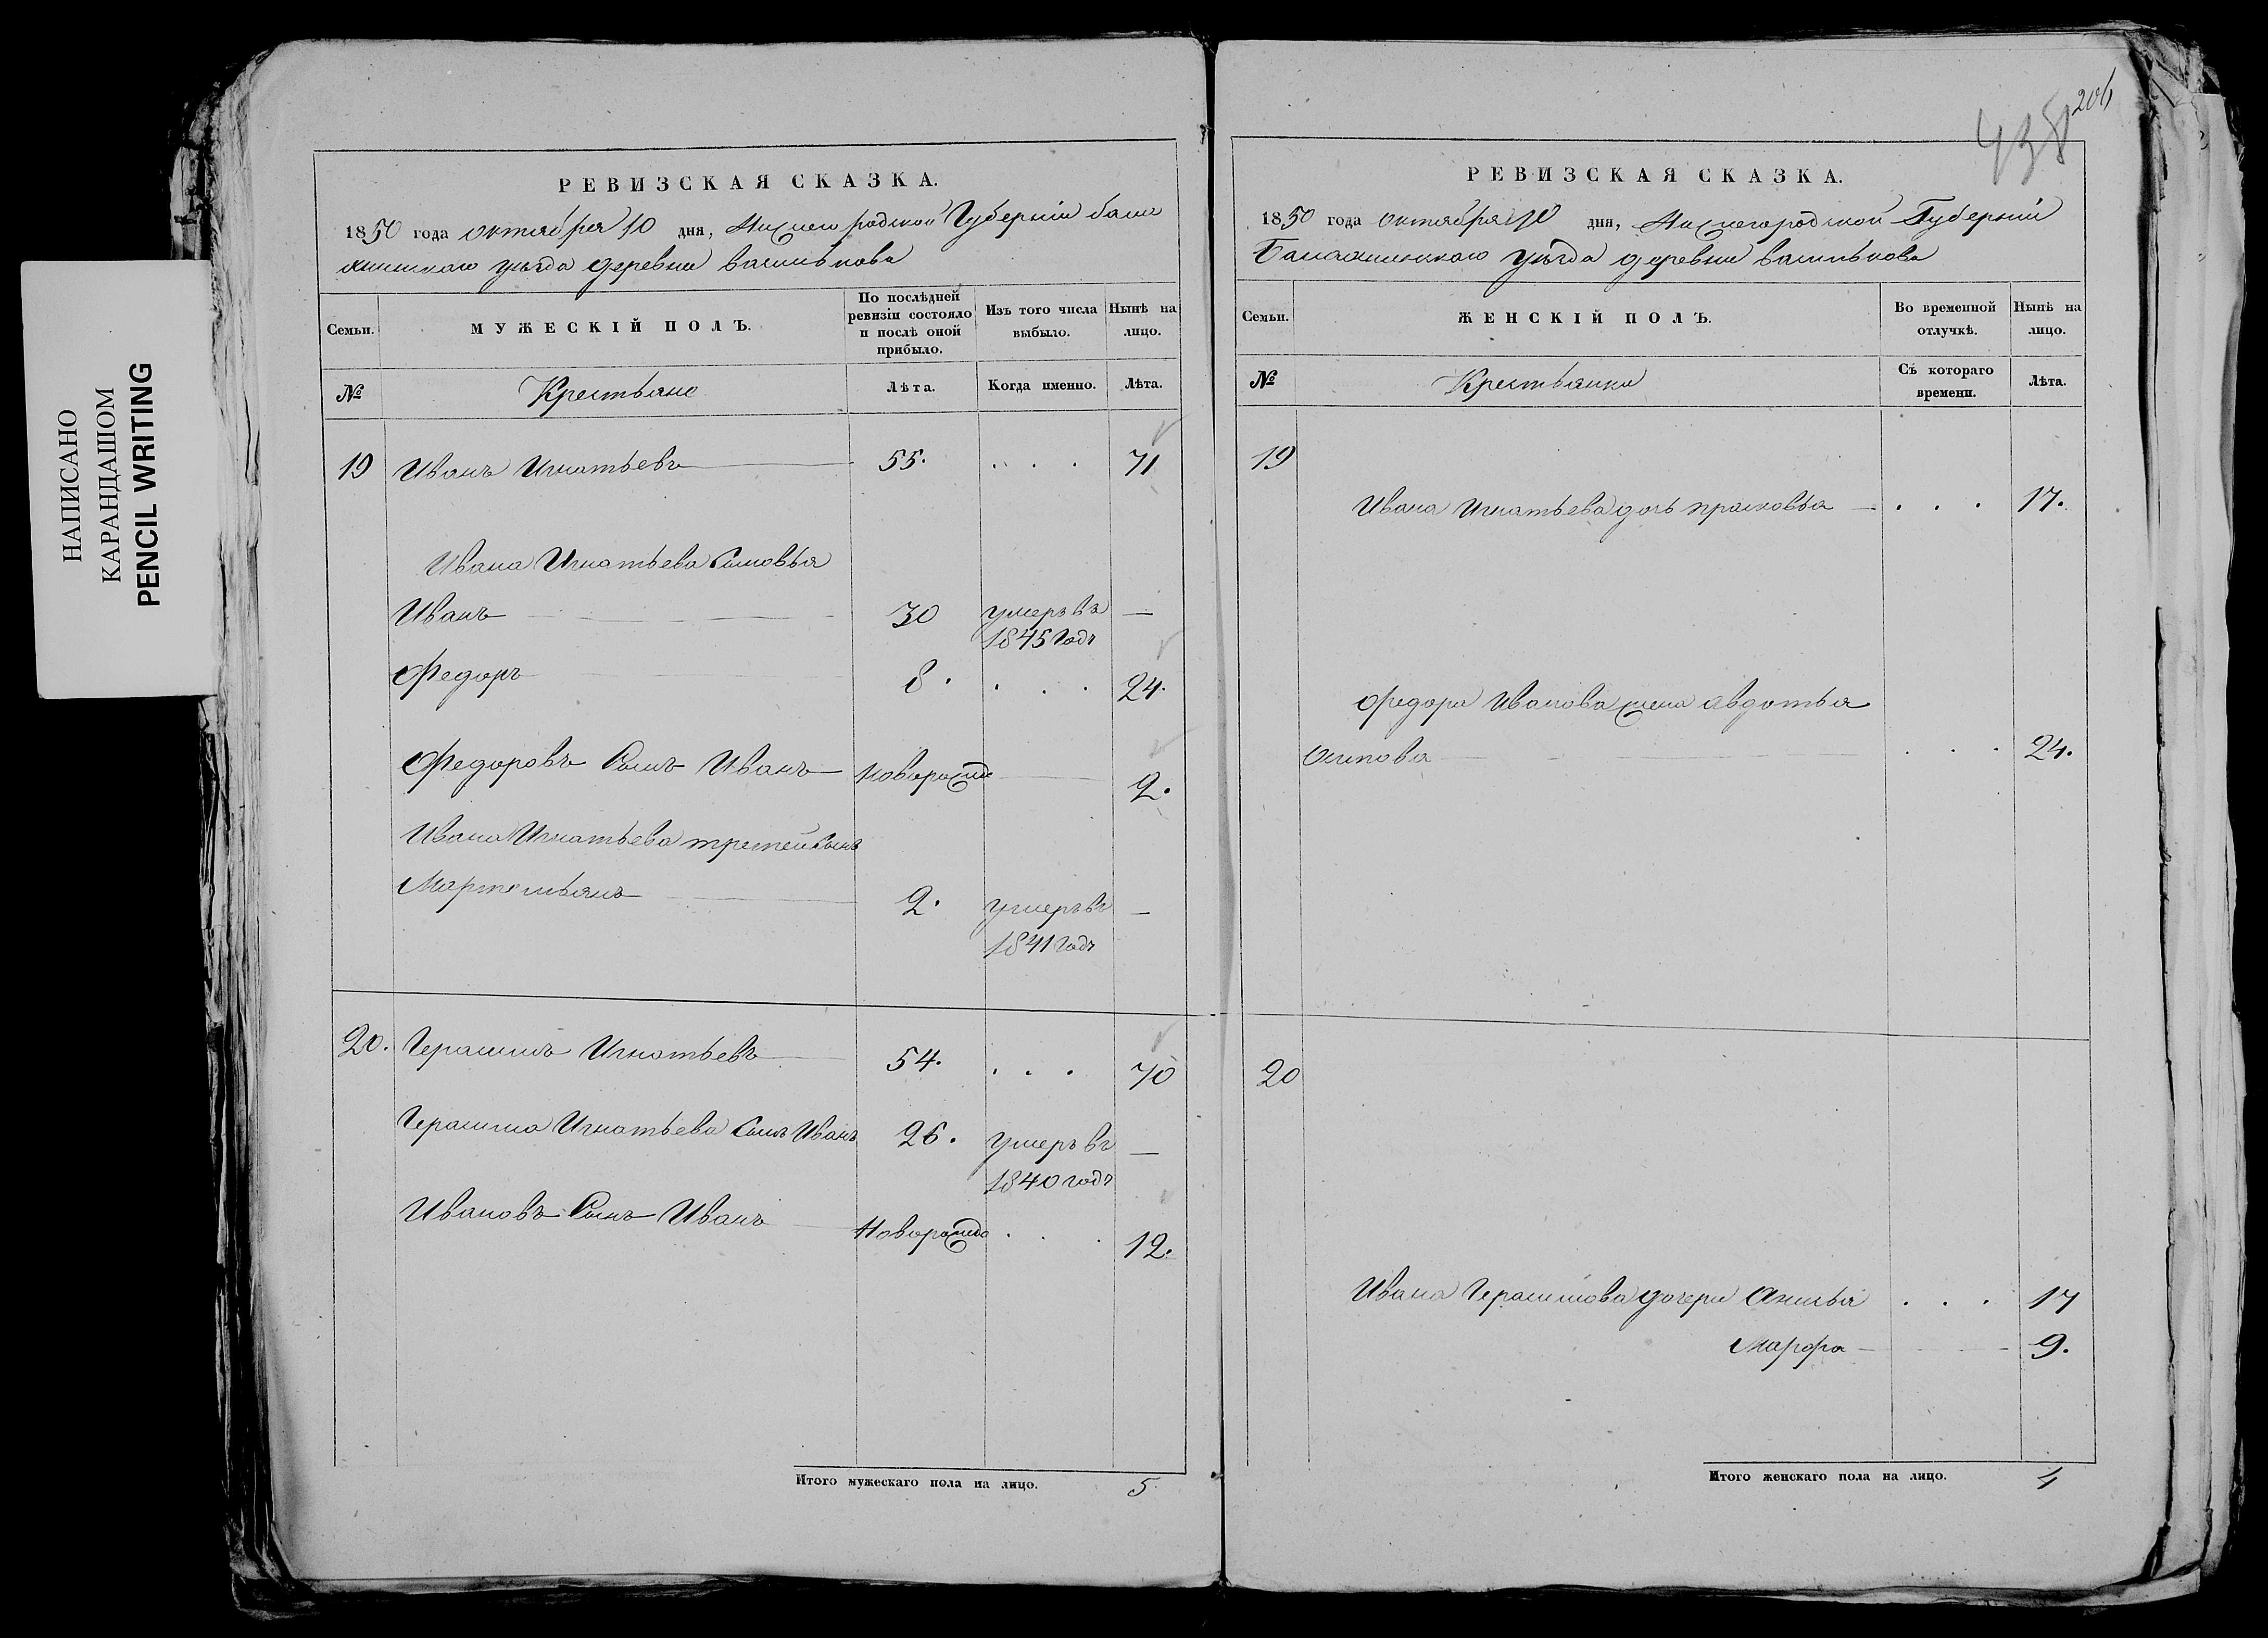 НАПИСАНО
КАРАНДАШОМ
PENCIL WRITING
РЕВИЗСКАЯ СКАЗКА.
1850 года октября 10 дня, Нижегородской Губернiи бала
хнинскаго уѣзда деревни василькова
Семьи.
МУЖЕСКІЙ ПОЛЪ.
По послѣдней ревизіи состояло и послѣ оной прибыло.
Изъ того числа выбыло.
Нынѣ на лицо.
№
Крестьяне
Лѣта.
Когда именно.
Лѣта.
19 Иванъ Игнатьевъ 55. . . . 71
Ивана Игнатьева Сыновья
Иванъ 30 умеръ въ —
1845 Годъ
Федоръ 8. . . . 24.
Федоровъ Сынъ Иванъ Новорожде 2.
Ивана Игнатьева третей сынъ
Мартемьянъ 2. умеръ въ —
1841 годъ
20. Герасимъ Игнатьевъ 54. . . . 70
Герасима Игнатьева Сынъ Иванъ 26. умеръ въ —
1840 годъ
Ивановъ Сынъ Иванъ Новорожде . . . 12.
Итого мужескаго пола на лицо. 5.
206
438
РЕВИЗСКАЯ СКАЗКА.
1850 года октября 10 дня, Нижегородской Губернiи
Балахнинскаго уѣзда деревни василькова
Семьи.
ЖЕНСКІЙ ПОЛЪ.
Во временной отлучкѣ.
Нынѣ на лицо.
№
Крестьянки
Съ котораго времени.
Лѣта.
19
Ивана Игнатьева дочь прасковья — . . . 17.
Федора Иванова жена Авдотья
Осипова . . . 24.
20
Ивана Герасимова дочери Анисья . . . 17
Марфа 9.
Итого женскаго пола на лицо. 4